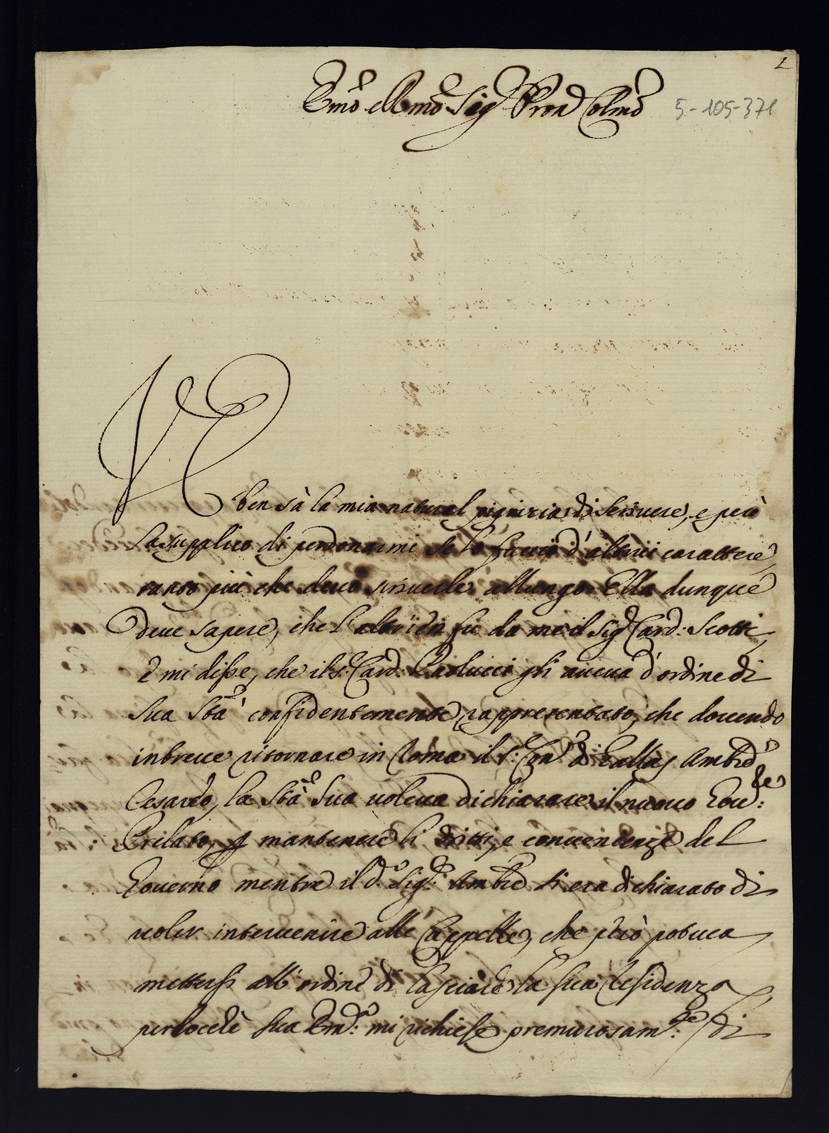 2
Emo e Rmo Sig Pron Colmo
5-105-371
VE
ben sà la mia natural pigrizia di scrivere, e però
La supplico di perdonarmi se lo faccio d'altrui carattere,
tanto più che devo scriverle a lungo. Ella dunque
deve sapere, che l'altrieri fù da me il Sig.r Card: Scotti,
e mi disse, che il s.r Card: Paolucci gli aveva d'ordine di
Sua Stà confidentemente rappresentato, che dovendo
in breve ritornare in Roma il s.r Con: di Gallas Ambre
Cesareo, la Stà Sua voleva dichiarare il nuovo Govre:
Prelato, p mantenere li dritti, e convenienze del
Governo mentre il do Sig: Ambre si era dichiarato di
voler intervenire alle Cappelle, che però poteva
mettersi all'ordine di lasciare la sua Residenza,
perloche sua Emza: mi richiese premurosamte: di